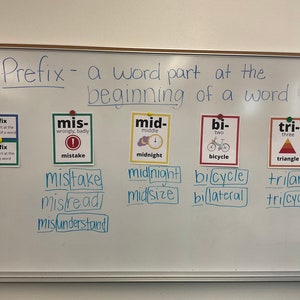 Prefix - a word part at the
beginning of a word
mis-
wrongly, badly
mistake
mid-
middle
midnight
bi-
two
bicycle
tri-
three
triangle
mistake
misread
misunderstand
midnight
midsize
bicycle
bilateral